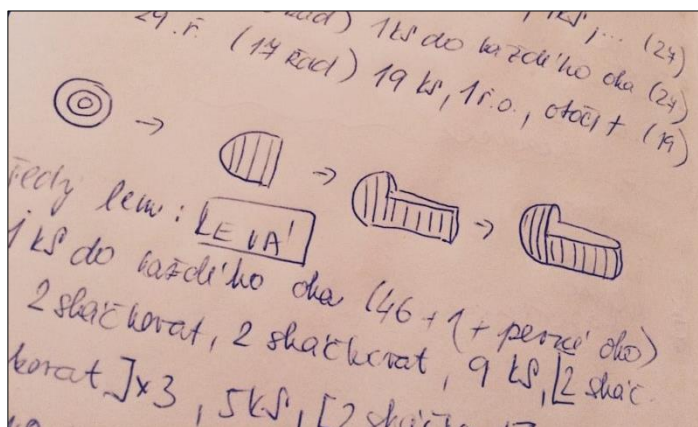 řad) 1 ks do každého oka (27)
29. ř. (17 řad) 19 ks, 1 ř.o., otočit (19)
Tedy lem: LEVÁ
1 ks do každého oka (46 + 1 + pevné oko)
2 sháčkovat, 2 sháčkovat, 9 ks, [2 sháč-
kovat] x3, 5 ks, [2